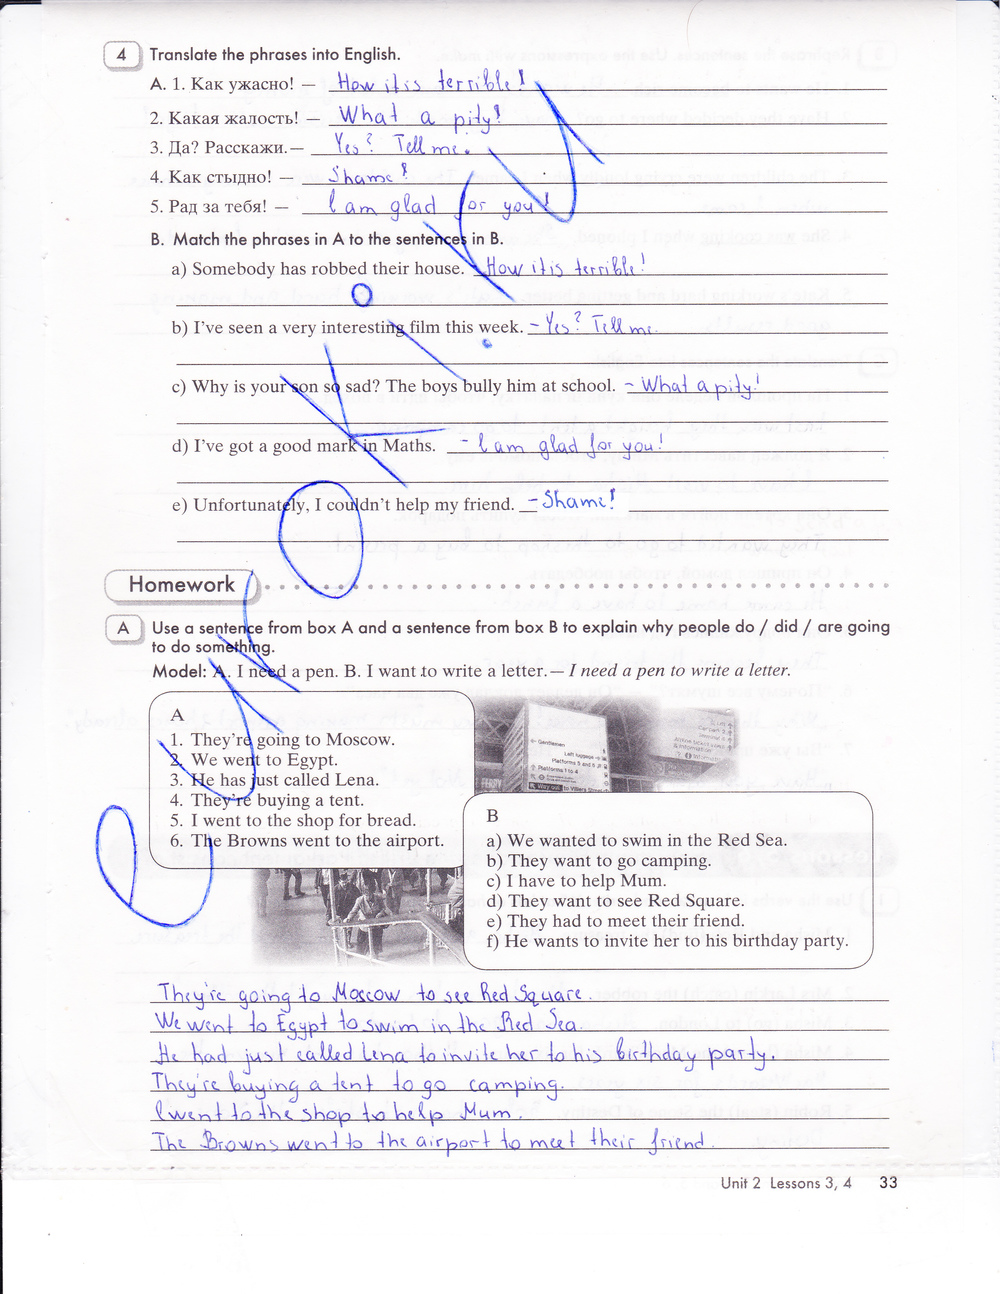 4 Translate the phrases into English.
A. 1. Как ужасно! — How it is terrible!
2. Какая жалость! — What a pity!
3. Да? Расскажи.— Yes? Tell me.
4. Как стыдно! — Shame!
5. Рад за тебя! — I am glad for you!
B. Match the phrases in A to the sentences in B.
a) Somebody has robbed their house. How it is terrible!
b) I've seen a very interesting film this week. – Yes? Tell me.
c) Why is your son so sad? The boys bully him at school. – What a pity!
d) I've got a good mark in Maths. – I am glad for you!
e) Unfortunately, I couldn't help my friend. – Shame!
Homework
A Use a sentence from box A and a sentence from box B to explain why people do / did / are going
to do something.
Model: A. I need a pen. B. I want to write a letter.— I need a pen to write a letter.
A
1. They're going to Moscow.
2. We went to Egypt.
3. He has just called Lena.
4. They're buying a tent.
5. I went to the shop for bread.
6. The Browns went to the airport.
Gentlemen
Left luggage
Platforms 5 and 6
Platforms 1 to 4
Way out
B
a) We wanted to swim in the Red Sea.
b) They want to go camping.
c) I have to help Mum.
d) They want to see Red Square.
e) They had to meet their friend.
f) He wants to invite her to his birthday party.
They're going to Moscow to see Red Square.
We went to Egypt to swim in the Red Sea.
He had just called Lena to invite her to his birthday party.
They're buying a tent to go camping.
I went to the shop to help Mum.
The Browns went to the airport to meet their friend.
Unit 2 Lessons 3, 4 33